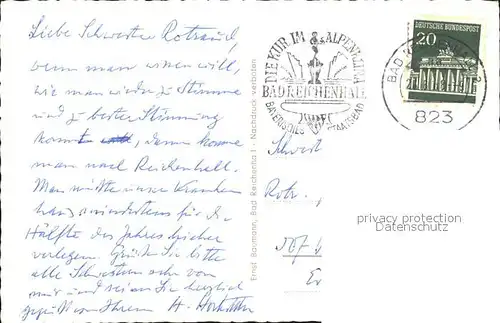 Liebe Schwester Rotraud,
wenn man wissen will,
wie man wieder zu Stimme
und zu bester Stimmung
kommt, dann komme
man nach Reichenhall.
Man müßte unser Kranken
haus mindestens für die
Hälfte des Jahres hierher
verlegen. Grüßen Sie bitte
alle Schwestern sehr von
mir und seien Sie herzlich
gegrüßt von Ihrem H.
Ernst Baumann, Bad Reichenhall - Nachdruck verboten
DIE KUR IM ALPENKLIMA
BAD REICHENHALL
BAYERISCHES STAATSBAD
DEUTSCHE BUNDESPOST
20
BAD
823
Schwest
Rotr.
privacy protection
Datenschutz